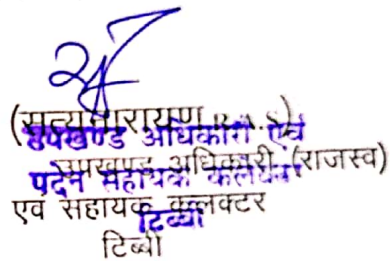 (सत्यनारायण R.A.S)
उपखण्ड अधिकारी एवं
उपखण्ड अधिकारी (राजस्व)
पदेन सहायक कलक्टर
एवं सहायक कलक्टर
टिब्बी
टिब्बी